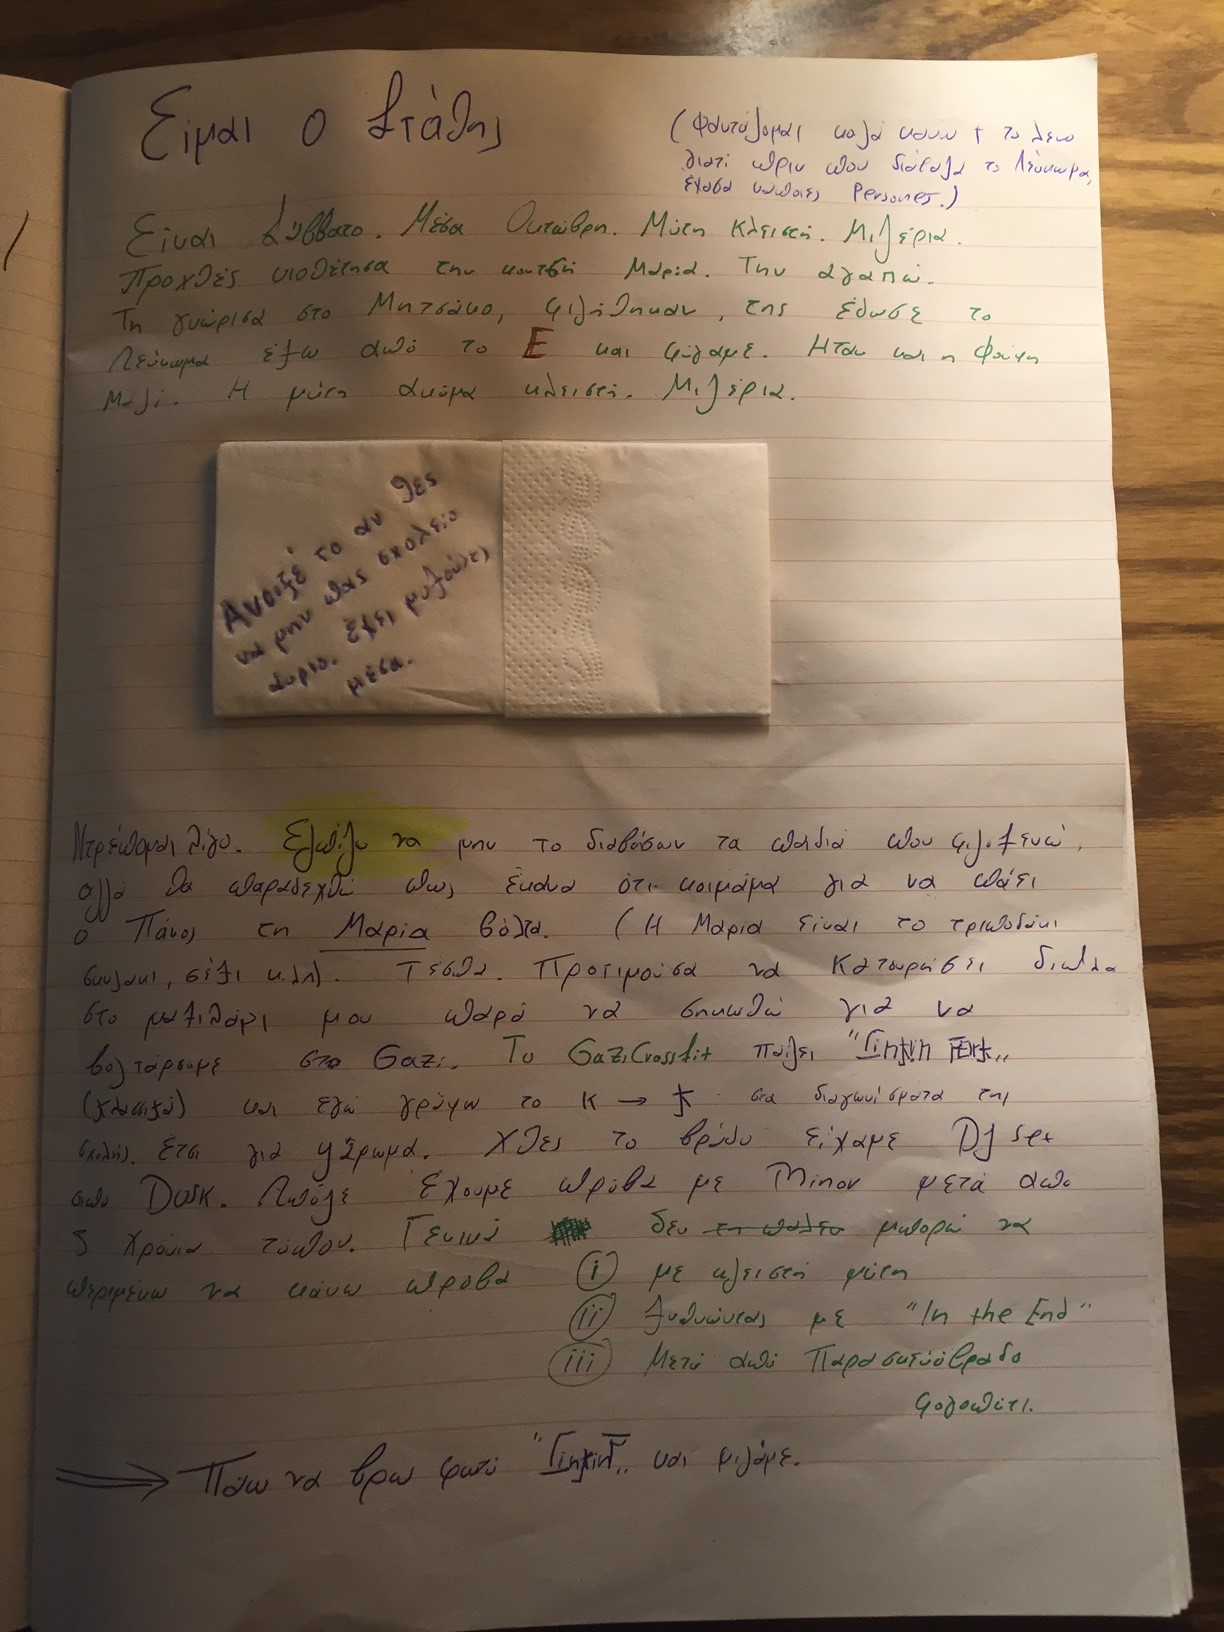 Είμαι ο Στάθης
(Φαντάζομαι καλά κάνω + το λέω
γιατί πριν που διάβαζα το Λεύκωμα,
έχασα κάποιες Persones.)
Είναι Σάββατο. Μέσα Οκτώβρη. Μύτη Κλειστή. Μιζέρια.
Προχθές υιοθέτησα την κουτσή Μαρία. Την αγαπώ.
Τη γνώρισα στο Μητσάκο, φιλήθηκαν, της έδωσε το
Λεύκωμα έξω από το Ε και φύγαμε. Ήταν και η Φοίφη
Μαζί. Η μύτη ακόμα κλειστή. Μιζέρια.
Άνοιξέ το αν θες
να μην πας σχολείο
αύριο. Έχει μυξούλες
μέσα.
Ντρέπομαι λίγο. Ελπίζω να μην το διαβάσουν τα παιδιά που φιλοξενώ,
αλλά θα παραδεχθώ πως έκανα ότι κοιμάμαι για να πάει
ο Πάνος τη Μαρία βόλτα. (Η Μαρία είναι το τριποδάκι
σκυλάκι, σέξι κ.λπ). Τέσπα. Προτιμούσα να κατουρήσει δίπλα
στο μαξιλάρι μου παρά να σηκωθώ για να
βολτάρουμε στο Gazi. Το GaziCrossfit παίζει "Linkin Park"
(κλασσικά) και εγώ γράφω το κ → 𝈲 στα διαγωνίσματα της
σχολής. Έτσι για γάρωμα. Χθες το βράδυ είχαμε DJ set
στο Dark. Απόψε έχουμε πρόβα με Minor μετά από
5 χρόνια τύπου. Γενικά δεν τη πάλευ μπορώ να
περιμένω να κάνω πρόβα (i) με κλειστή μύτη
(ii) ξυπνώντας με "In the End"
(iii) Μετά από Παρασκευόβραδο
φολοπάτι.
⟹ Πάω να βρω φωτό "Linkin" και μιλάμε.